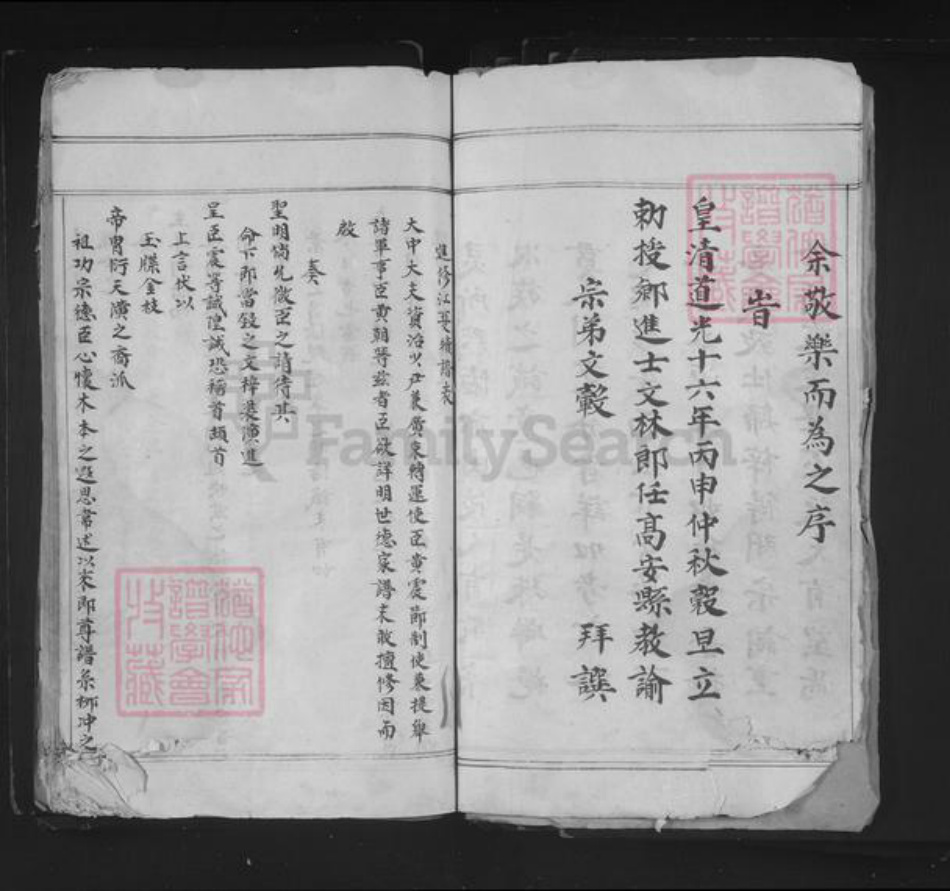 余敬樂而為之序
旹
皇清道光十六年丙申仲秋穀旦立
勅授鄉進士文林郎任高安縣教諭
宗弟文轂 拜譔
進修江夏續譜表
大中大夫資治少尹兼廣東轉運使臣黄震節制使兼提舉
諸軍事臣黄朝等兹者臣欲詳明世德家譜未敢擅修因而
啟
奏
聖明倘允微臣之請待其
命下即當發之文梓裝演進
呈臣震等誠惶誠恐稱首頓首
上言伏以
玉牒金枝
帝冑衍天潢之裔派
祖功宗德臣心懷木本之遐思常述以來即尊譜系柳冲之
猶他家譜學會收藏
猶他家譜學會收藏
FamilySearch